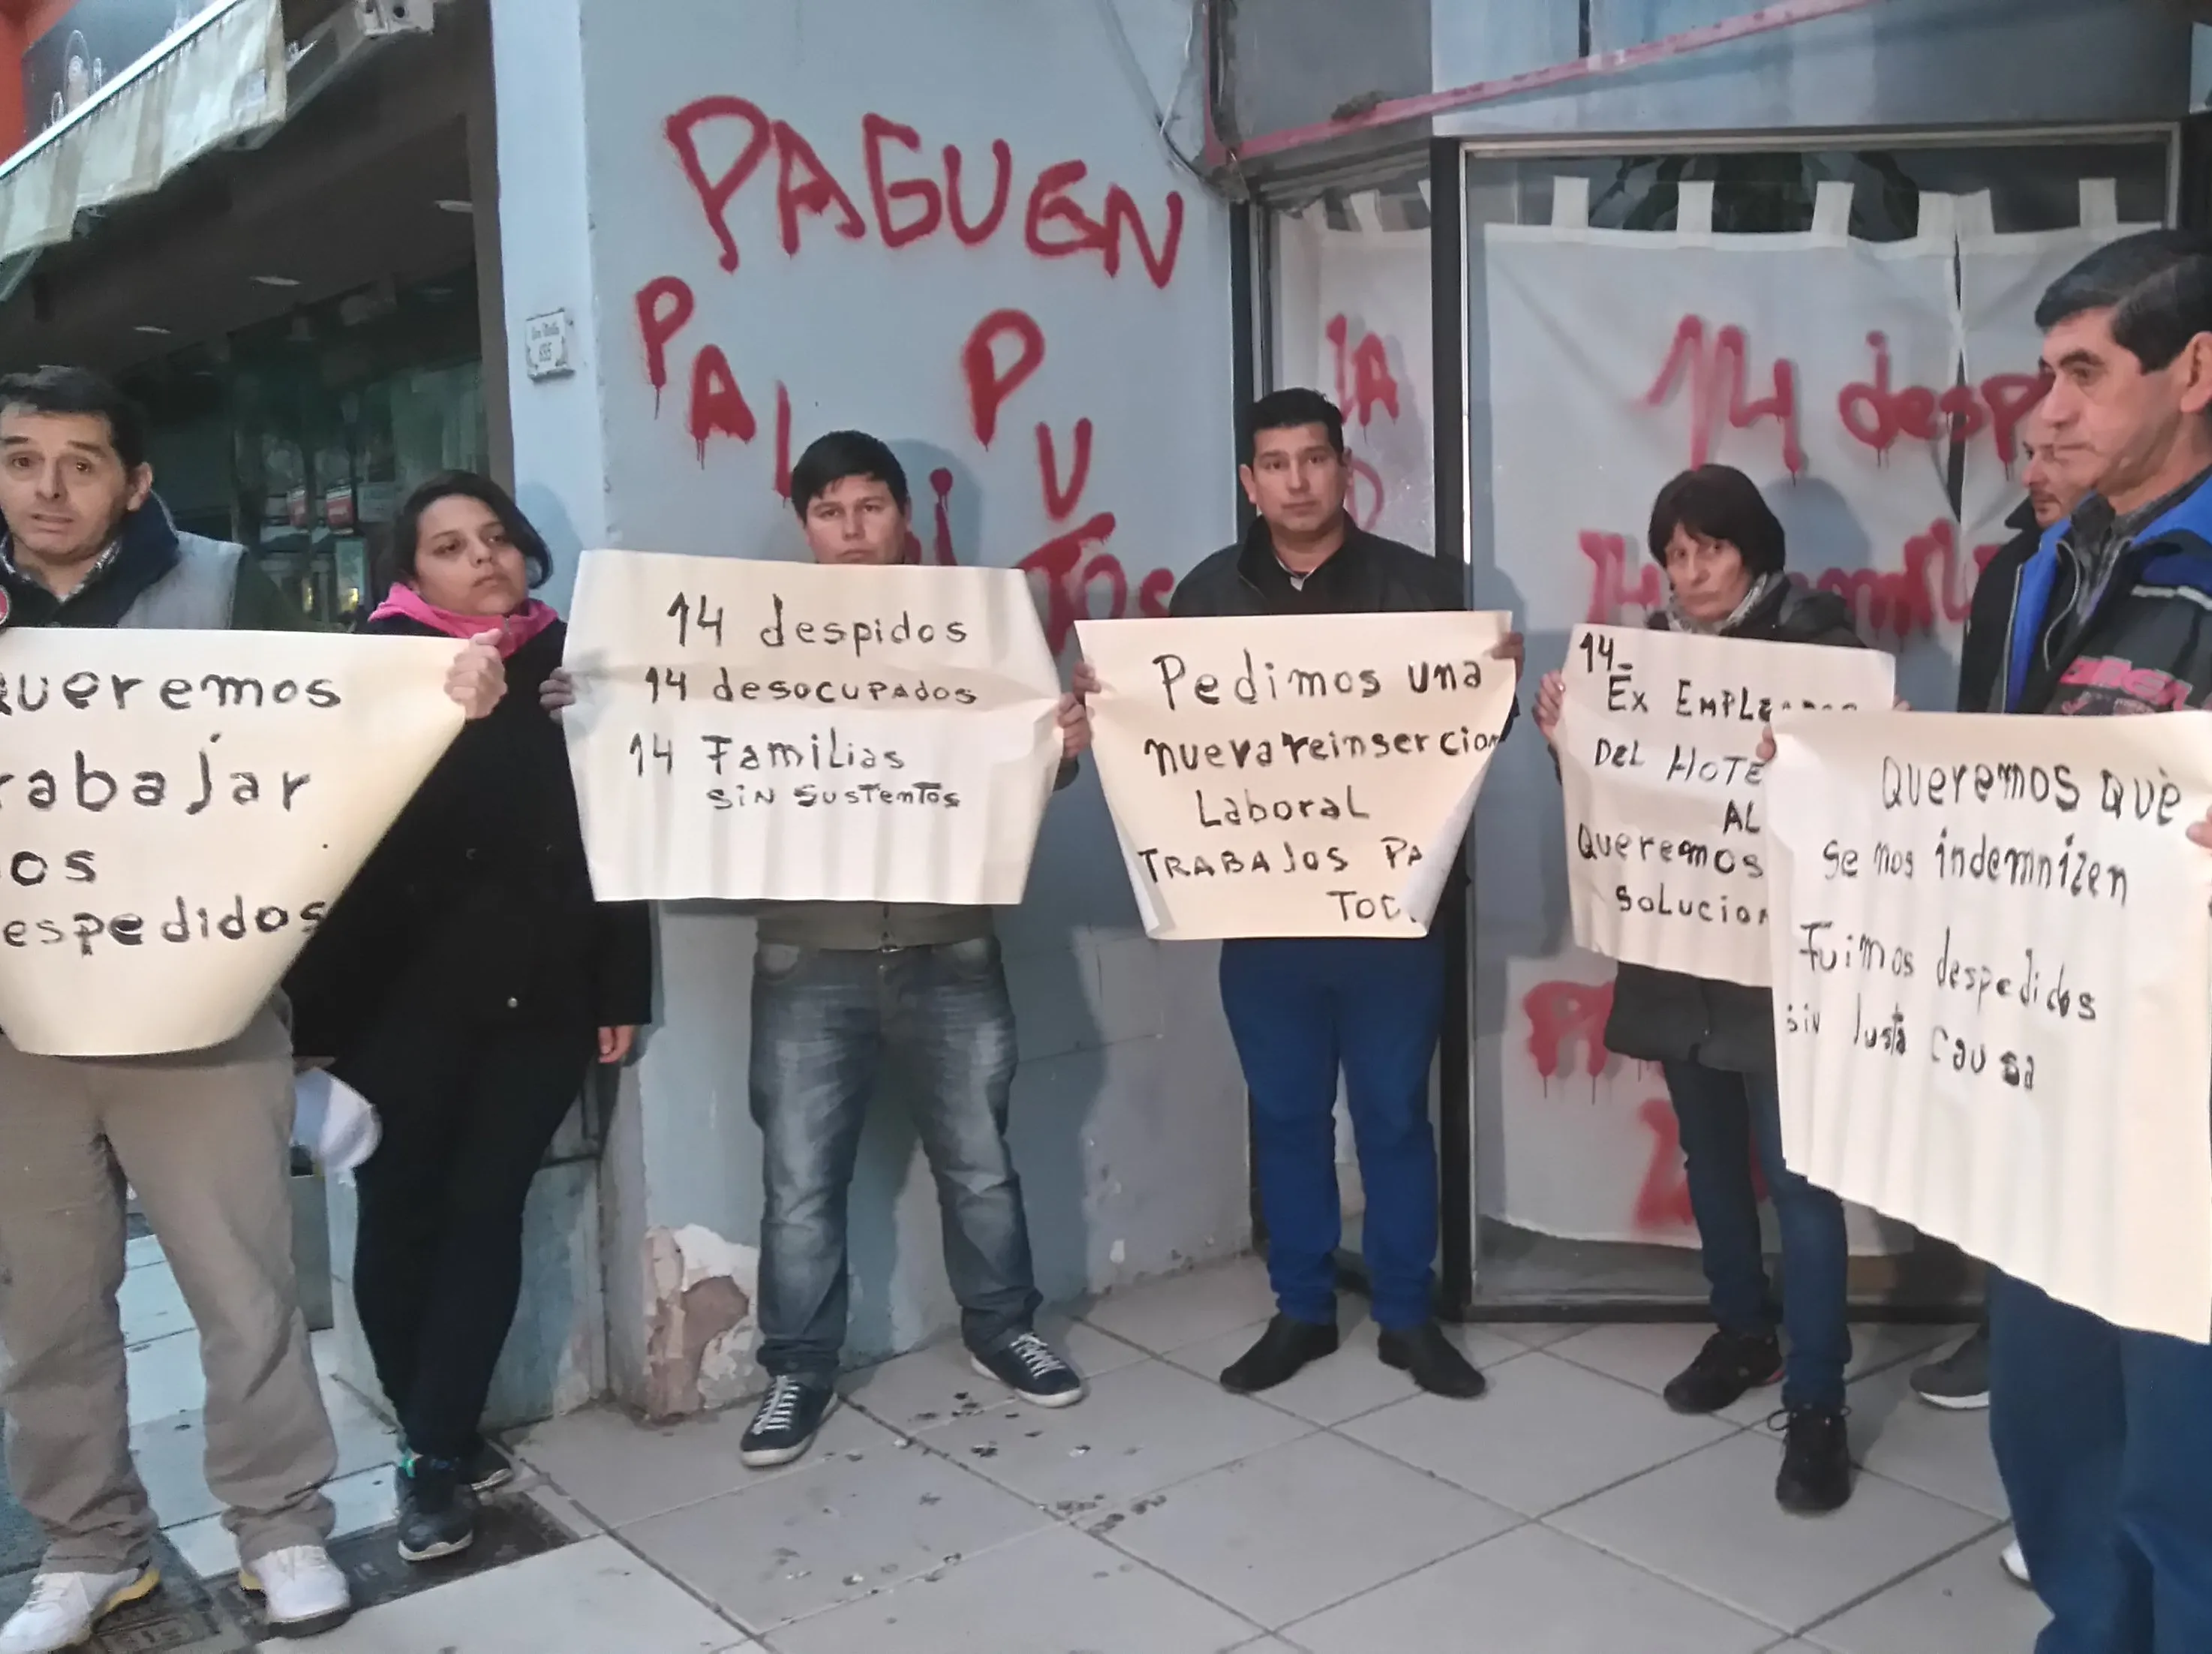 PAGUEN
PAL
PUTOS
14 desp
14
655
ueremos
rabajar
os
espedidos
14 despidos
14 desocupados
14 Familias
sin sustentos
Pedimos una
nueva reinsercion
Laboral
TRABAJOS PA
TOD
14-
Ex EMPLEADOS
DEL HOTE
AL
Queremos
Solucion
Queremos què
se nos indemnizen
Fuimos despedidos
sin Justa causa